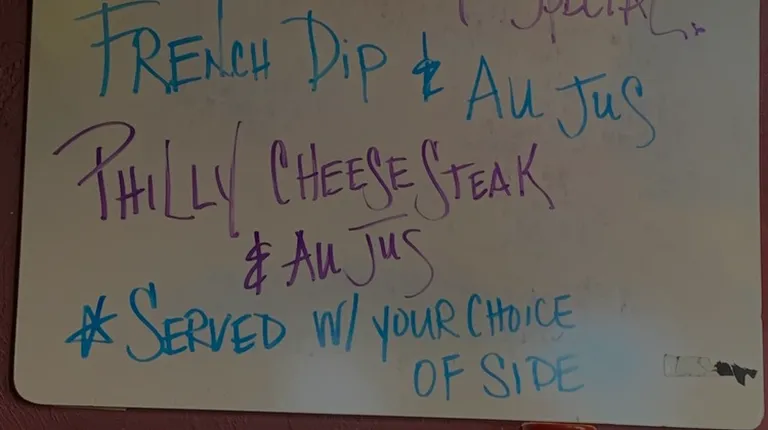 SPECIAL
FRENCH DIP & AU JUS
PHILLY CHEESE STEAK
& AU JUS
* SERVED W/ YOUR CHOICE
OF SIDE